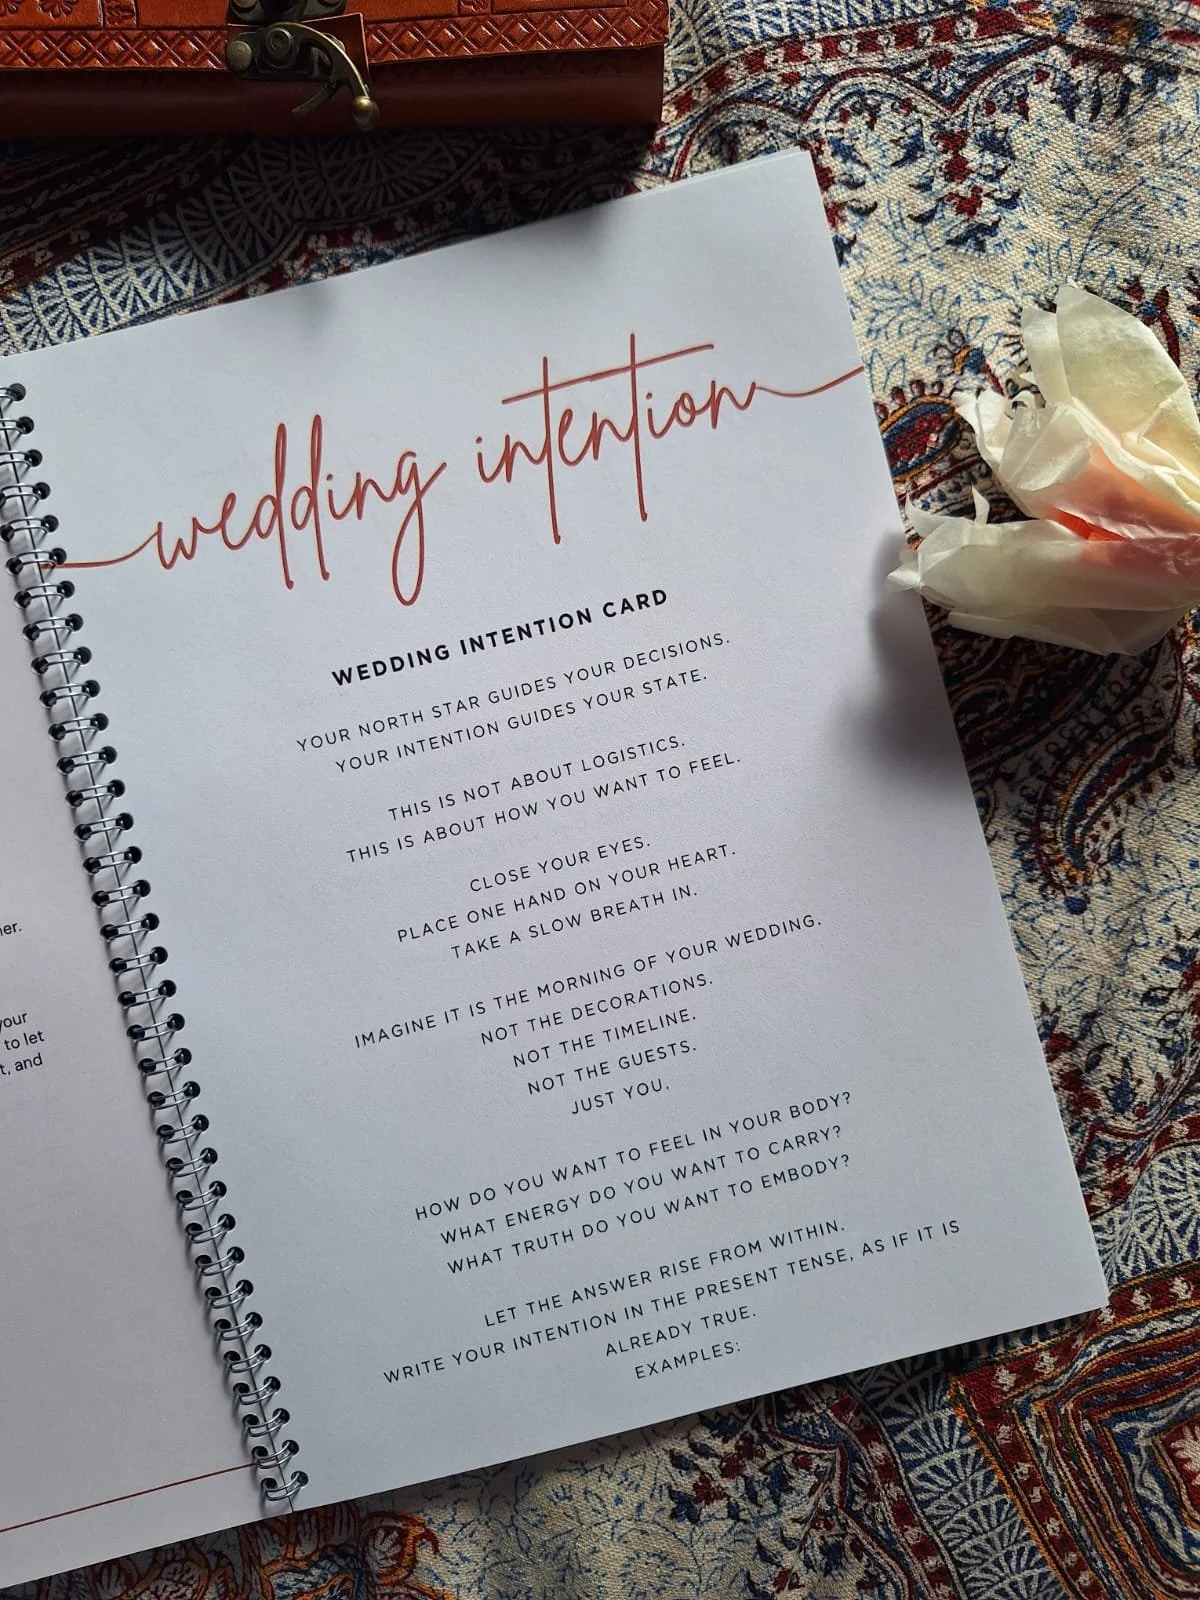 er.
your
to let
t, and
wedding intention
WEDDING INTENTION CARD
YOUR NORTH STAR GUIDES YOUR DECISIONS.
YOUR INTENTION GUIDES YOUR STATE.
THIS IS NOT ABOUT LOGISTICS.
THIS IS ABOUT HOW YOU WANT TO FEEL.
CLOSE YOUR EYES.
PLACE ONE HAND ON YOUR HEART.
TAKE A SLOW BREATH IN.
IMAGINE IT IS THE MORNING OF YOUR WEDDING.
NOT THE DECORATIONS.
NOT THE TIMELINE.
NOT THE GUESTS.
JUST YOU.
HOW DO YOU WANT TO FEEL IN YOUR BODY?
WHAT ENERGY DO YOU WANT TO CARRY?
WHAT TRUTH DO YOU WANT TO EMBODY?
LET THE ANSWER RISE FROM WITHIN.
WRITE YOUR INTENTION IN THE PRESENT TENSE, AS IF IT IS
ALREADY TRUE.
EXAMPLES: